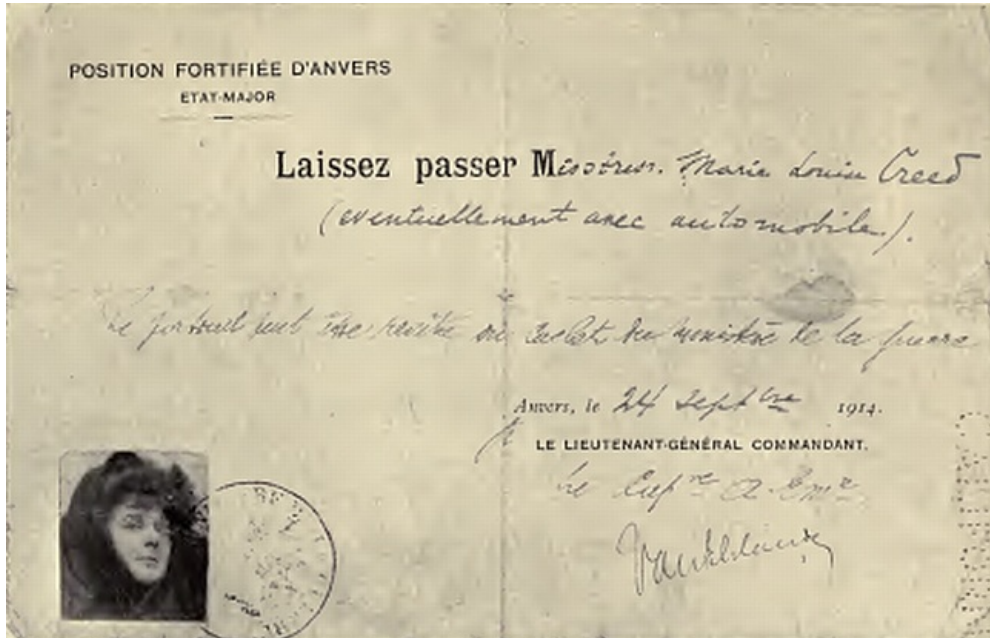 POSITION FORTIFIÉE D'ANVERS
ETAT-MAJOR
Laissez passer Misstress. Marie Louise Creed
(eventuellement avec automobile).
Le portrait doit être revêtu du cachet du ministère de la guerre
Anvers, le 24 Sept bre 1914.
LE LIEUTENANT-GÉNÉRAL COMMANDANT.
Le Cap ne